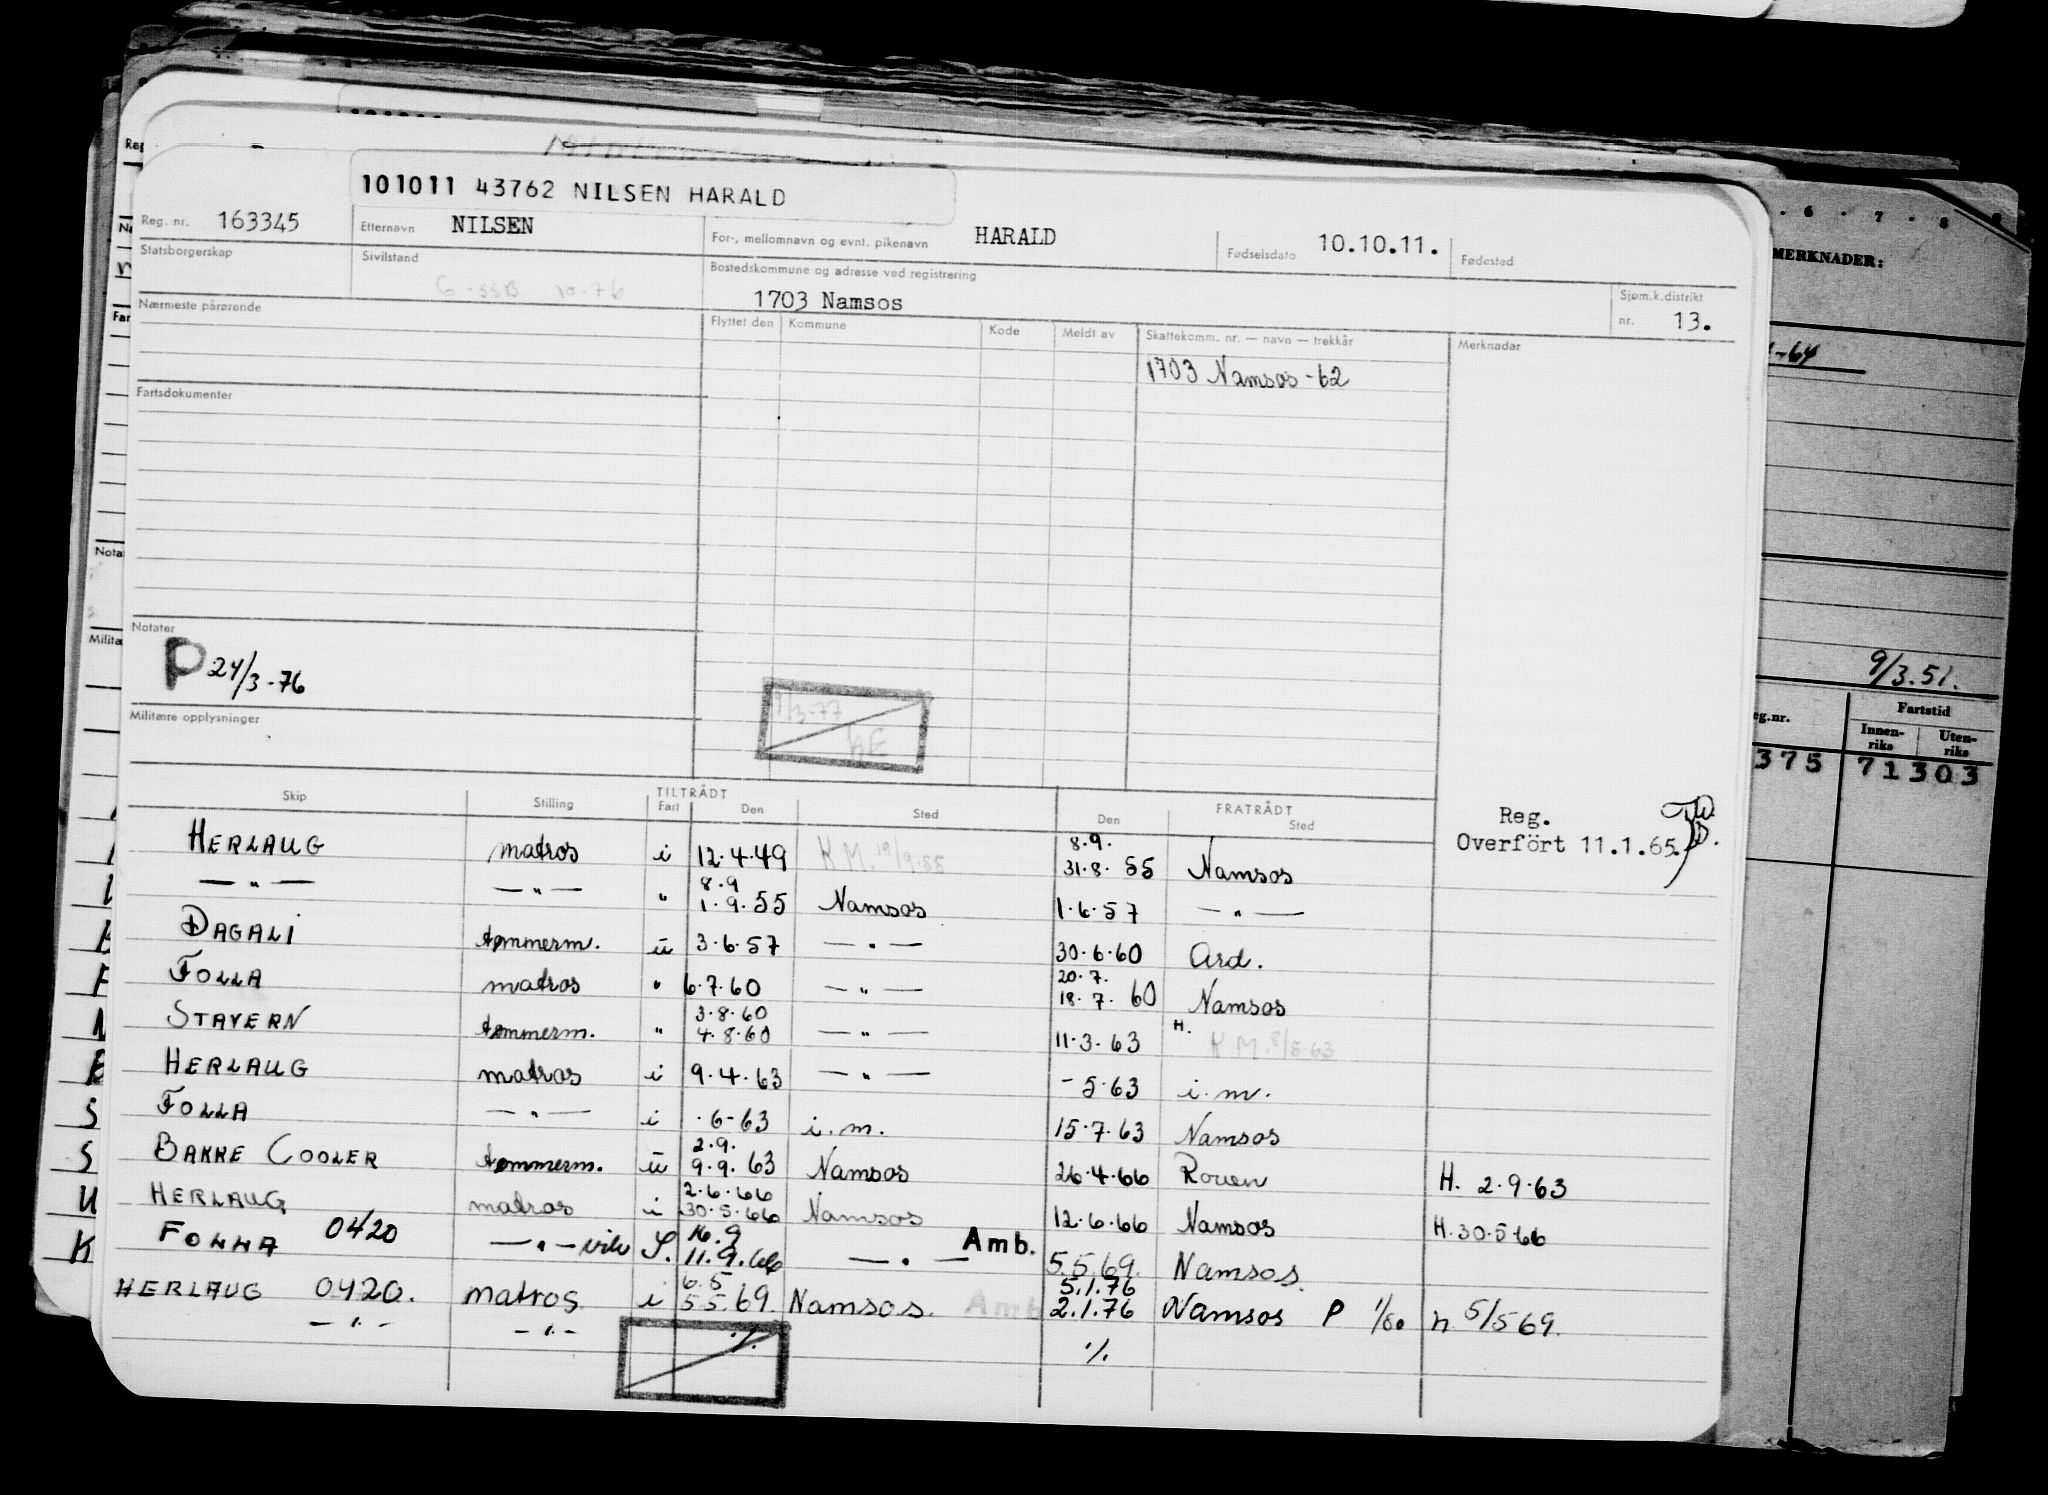 101011 43762 NILSEN HARALD
Reg. nr. 163345 Etternavn NILSEN For-, mellomnavn og evnt. pikenavn HARALD Fødselsdato 10.10.11. Fødested
Statsborgerskap Sivilstand Bostedskommune og adresse ved registrering
1703 Namsos Sjøm.k.distrikt nr. 13.
Nærmeste pårørende Flyttet den Kommune Kode Meldt av Skattekomm. nr. — navn — trekkår Merknader
1703 Namsos -62
Fartsdokumenter
Notater
P 24/3-76
Militære opplysninger
TILTRÅDT FRATRÅDT
Skip Stilling Fart Den Sted Den Sted
Reg.
Overført 11.1.65.
8.9.
HERLAUG matros i 12.4.49 K.M. 19/9.55 31.8.55 Namsos
8.9
— " — — " — " 1.9.55 Namsos 1.6.57 — " —
DAGALI tømmerm. ü 3.6.57 — " — 30.6.60 Ard.
20.7.
FOLLA matros " 6.7.60 — " — 18.7.60 Namsos
3.8.60
STAVERN tømmerm. " 4.8.60 — " — 11.3.63 H. K.M. 8/5.63
HERLAUG matros i 9.4.63 — " — -5.63 i.m.
FOLLA — " — i .6-63 i.m. 15.7.63 Namsos
2.9.
BAKKE COOLER tømmerm. ü 9.9.63 Namsos 26.4.66 Rouen H. 2.9.63
2.6.66
HERLAUG matros i 30.5.66 Namsos 12.6.66 Namsos H.30.5.66
16.9
FOLLA 0420 — " — S. 11.9.66 — " — Amb. 5.5.69. Namsos.
6.5 5.1.76
HERLAUG 0420. matros i 5.5.69. Namsos. Amb 2.1.76 Namsos P 1/80 h 5/5 69.
— " — — " — ./. ./.
6 . 7 . 8 . 9
MERKNADER:
-64
9/3.51.
eg.nr. Fartstid
Innen-riks Uten-riks
375 71303